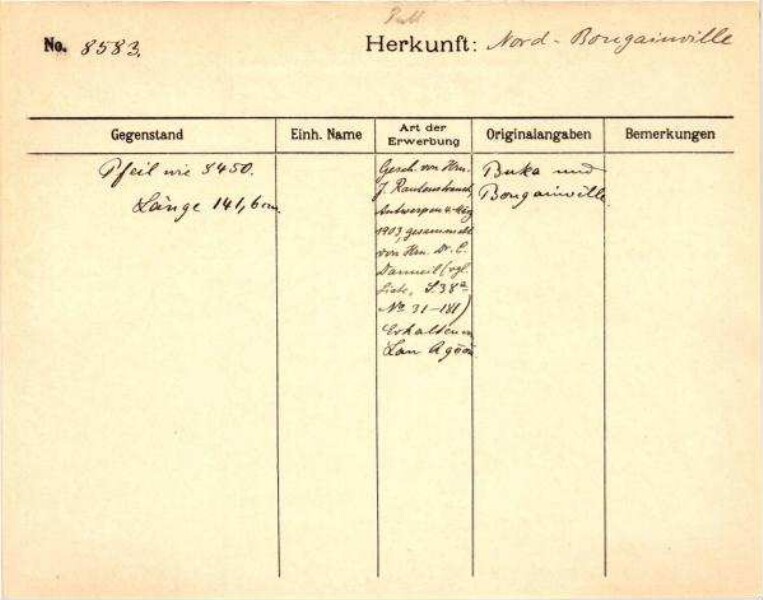 No. 8583.
Herkunft: Nord-Bougainville
Gegenstand
Einh. Name
Art der Erwerbung
Originalangaben
Bemerkungen
Pfeil wie 8450.
Länge 141,6 cm.
Gesch. von Hrn.
J. Rautenstrauch,
Antwerpen
1903, gesammelt
von Hrn. Dr. C.
Danneil (vgl.
Liste, S. 38a
No 31-181)
Erhalten
Lau Agöön
Buka und
Bougainville.